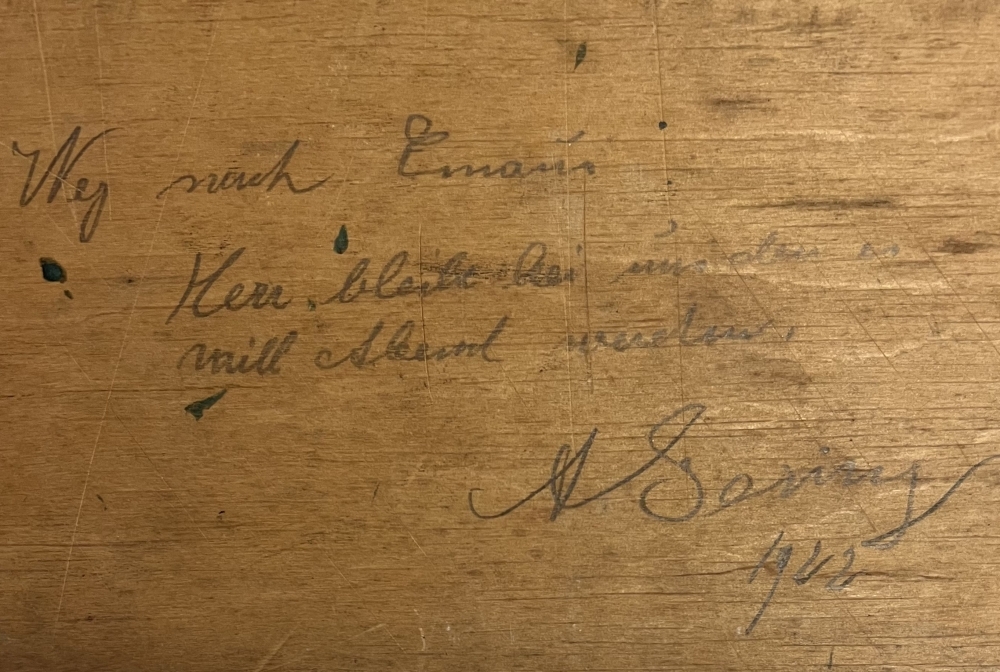 Weg nach Emaus
Herr, bleibe bei uns den es
will Abend werden,
A.